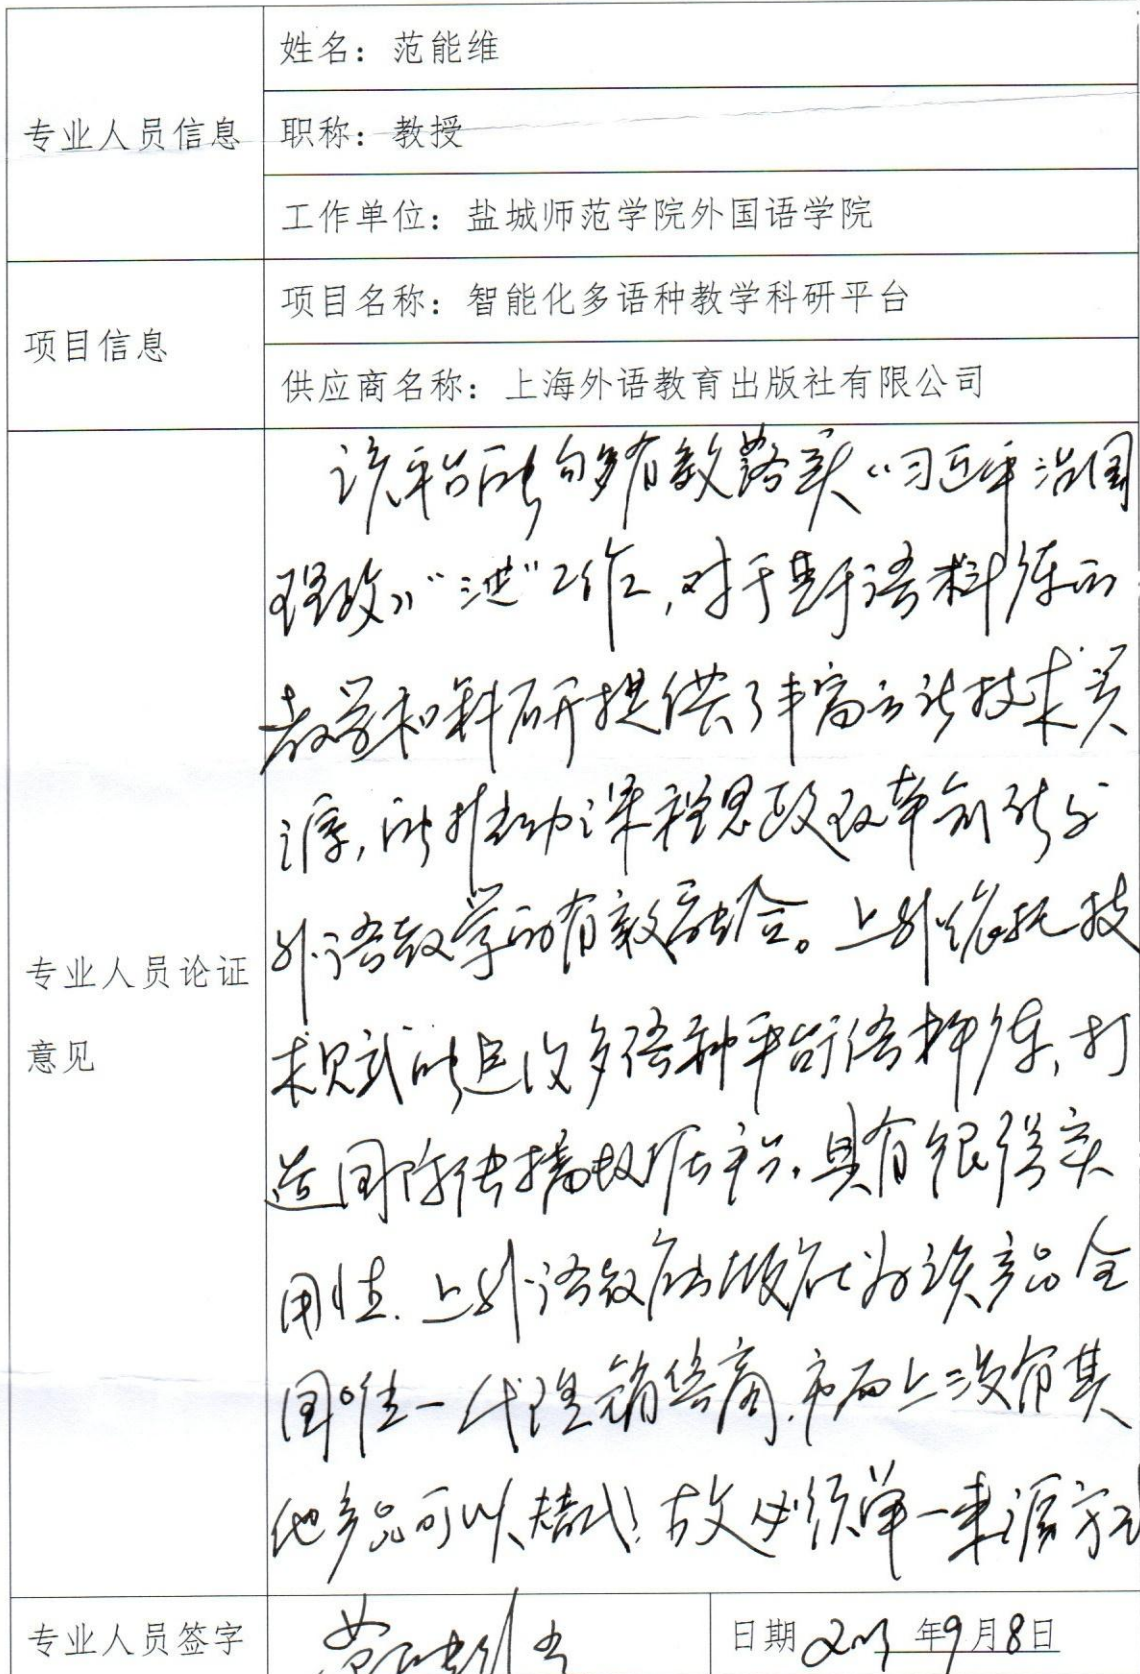 姓名：范能维
专业人员信息
职称：教授
工作单位：盐城师范学院外国语学院
项目信息
项目名称：智能化多语种教学科研平台
供应商名称：上海外语教育出版社有限公司
专业人员论证
意见
该平台能够有效落实《习近平治国
理政》“三进”工作，对于基于语料库的
教学和科研提供了丰富方法技术资
源，能推动课程思政改革创新与
外语教学的有效融合。上外依托技
术赋能建设多语种平行语料库，打
造国际传播数据平台，具有很强实
用性。上外语教育出版社为该产品全
国唯一代理销售商，市面上没有其
他产品可以替代！故必须单一来源方式
专业人员签字
范能维
日期 年9月8日